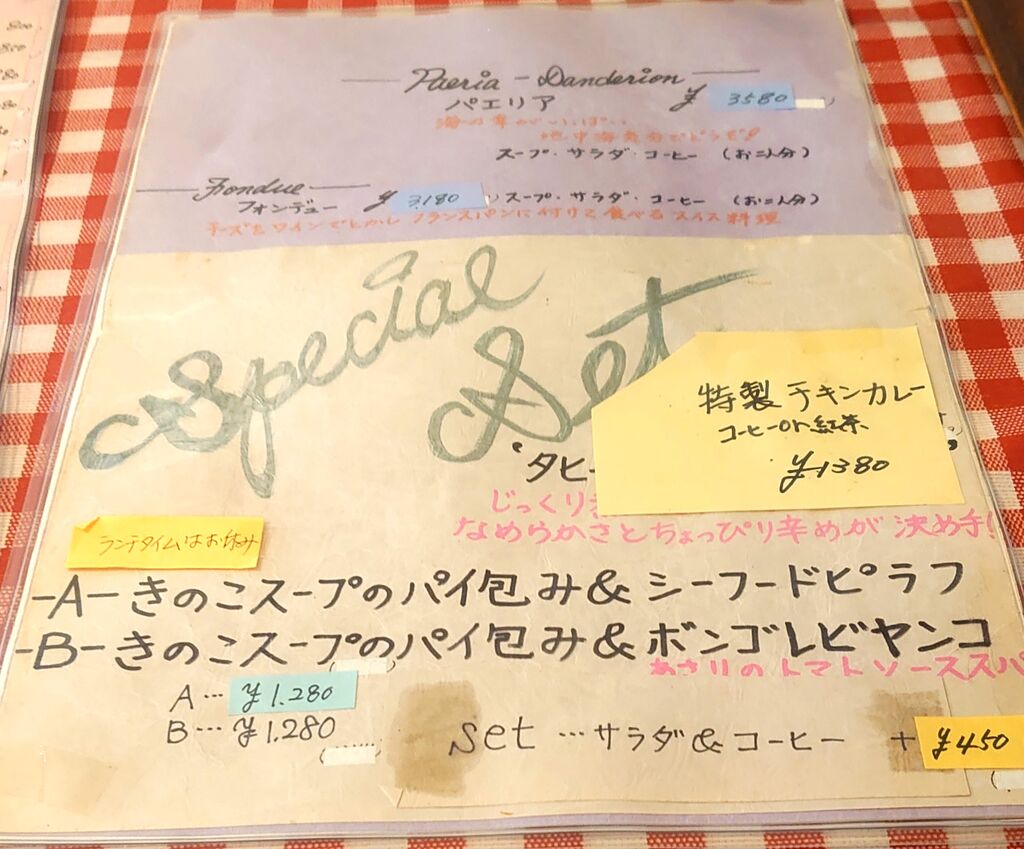 Paeria - Danderion
パエリア ¥3580
海の幸がいっぱい
地中海気分でドウゾ!
スープ・サラダ・コーヒー (お二人分)
Fondue ¥3,180 スープ・サラダ・コーヒー (お二人分)
フォンデュー
チーズをワインでとかし フランスパンに付けて食べるスイス料理
Special
Set
特製チキンカレー
コーヒーor紅茶
¥1380
"タヒ
じっくり
なめらかさとちょっぴり辛めが決め手!
ランチタイムはお休み
-A-きのこスープのパイ包み&シーフードピラフ
-B-きのこスープのパイ包み&ボンゴレビヤンコ
あさりのトマトソーススパ
A…¥1.280
B…¥1.280
set …サラダ&コーヒー +¥450